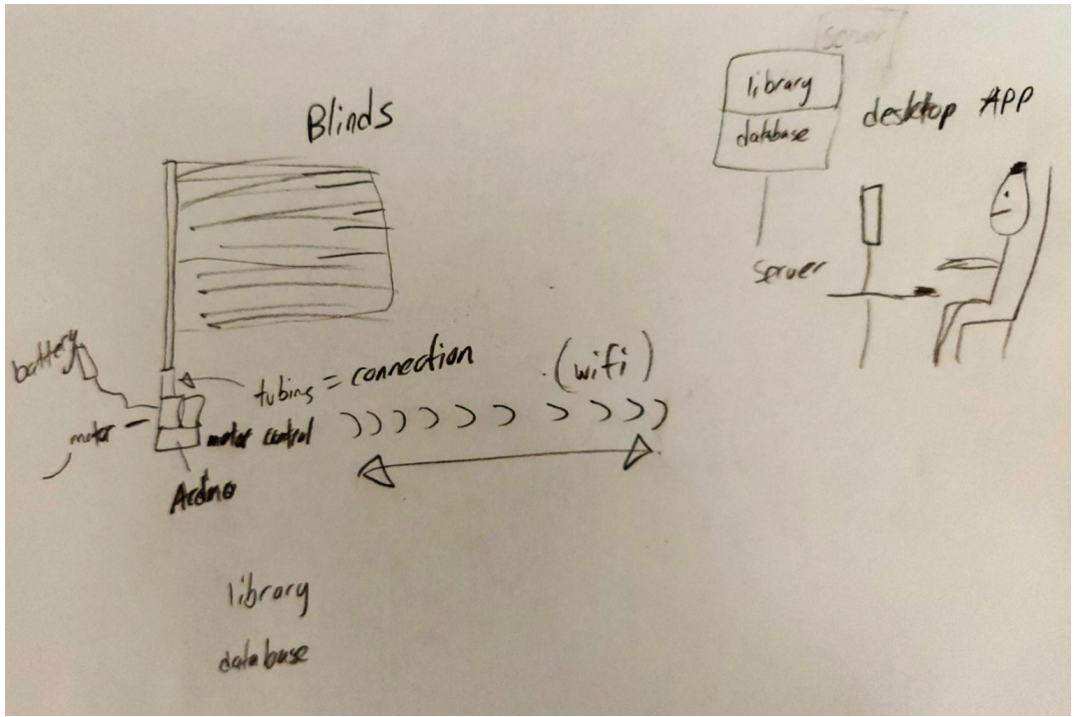 server
library
database
desktop APP
Blinds
server
battery
tubing = connection
(wifi)
motor
motor control
Ardino
library
database